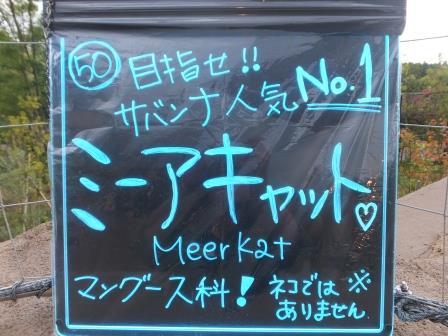 50 目指せ!!
サバンナ人気 No.1
ミーアキャット♡
Meerkat
マングース科! ネコでは※
ありません